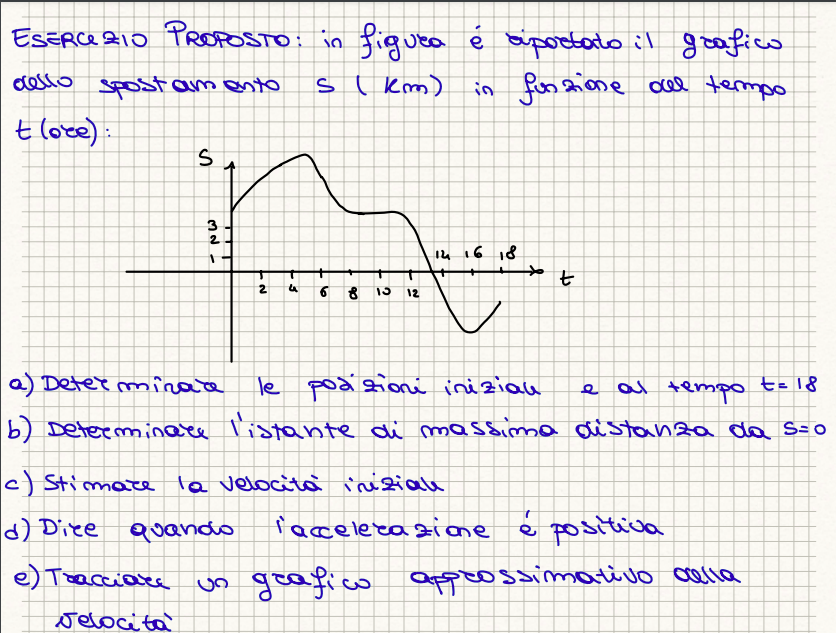 ESERCIZIO PROPOSTO: in figura é riportato il grafico
dello spostamento s (Km) in funzione del tempo
t (ore):
S
3
2
1
14 16 18
2 4 6 8 10 12
t
a) Determinare le posizioni iniziali e al tempo t=18
b) Determinare l'istante di massima distanza da s=0
c) Stimare la velocità iniziale
d) Dire quando l'accelerazione é positiva
e) Tracciare un grafico approssimativo della
velocità